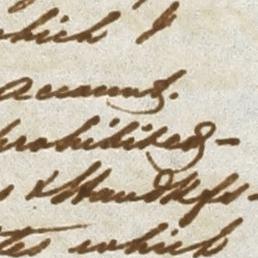 which I
account.
prohibited -
s & Handkfs -
tes which